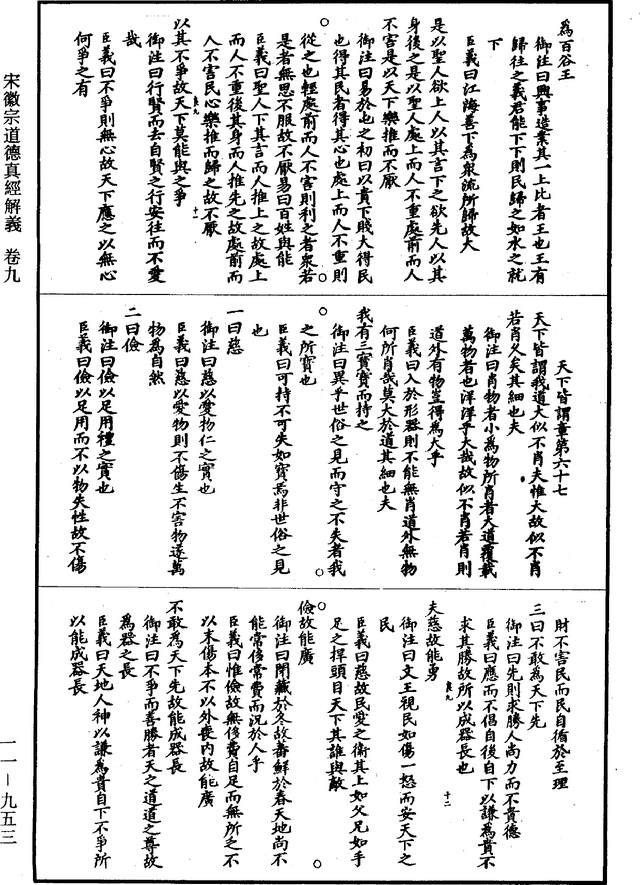 為百谷王
御注曰興事造業其一上比者王也王有
歸往之義君能下下則民歸之如水之就
下
臣義曰江海善下為衆流所歸故大
是以聖人欲上人以其言下之欲先人以其
身後之是以聖人處上而人不重處前而人
不害是以天下樂推而不厭
御注曰易於屯之初曰以貴下賤大得民
也得其民者得其心也處上而人不重則
從之也輕處前而人不害則利之者衆若
是者無思不服故不厭易曰百姓與能
臣義曰聖人下其言而人推上之故處上
而人不重後其身而人推先之故處前而
人不害民心樂推而歸之故不厭
以其不爭故天下莫能與之爭
御注曰行賢而去自賢之行安往而不愛
哉
臣義曰不爭則無心故天下應之以無心
何爭之有
天下皆謂章第六十七
天下皆謂我道大似不肖夫惟大故似不肖
若肖久矣其細也夫
御注曰肖物者小為物所肖者大道覆載
萬物者也洋洋乎大哉故似不肖若肖則
道外有物豈得為大乎
臣義曰入於形器則不能無肖道外無物
何所肖哉莫大於道其細也夫
我有三寶寶而持之
御注曰異乎世俗之見而守之不失者我
之所寶也
臣義曰可持不可失如寶焉非世俗之見
也
一曰慈
御注曰慈以愛物仁之寶也
臣義曰慈以愛物則不傷生不害物遂萬
物為自然
二曰儉
御注曰儉以足用禮之寶也
臣義曰儉以足用而不以物失性故不傷
財不害民而民自循於至理
三曰不敢為天下先
御注曰先則求勝人尚力而不貴德
臣義曰應而不倡自後自下以謙為貴不
求其勝故所以成器長也
夫慈故能勇
御注曰文王視民如傷一怒而安天下之
民
臣義曰慈故民愛之衛其上如父兄如手
足之捍頭目天下其誰與敵
儉故能廣
御注曰閉藏於冬故蕃鮮於春天地尚不
能常侈常費而況於人乎
臣義曰惟儉故無侈費自足而無所乏不
以末傷本不以外喪内故能廣
不敢為天下先故能成器長
御注曰不爭而善勝者天之道道之尊故
為器之長
臣義曰天地人神以謙為貴自下不爭所
以能成器長
宋徽宗道德真經解義　卷九
一一－九五三